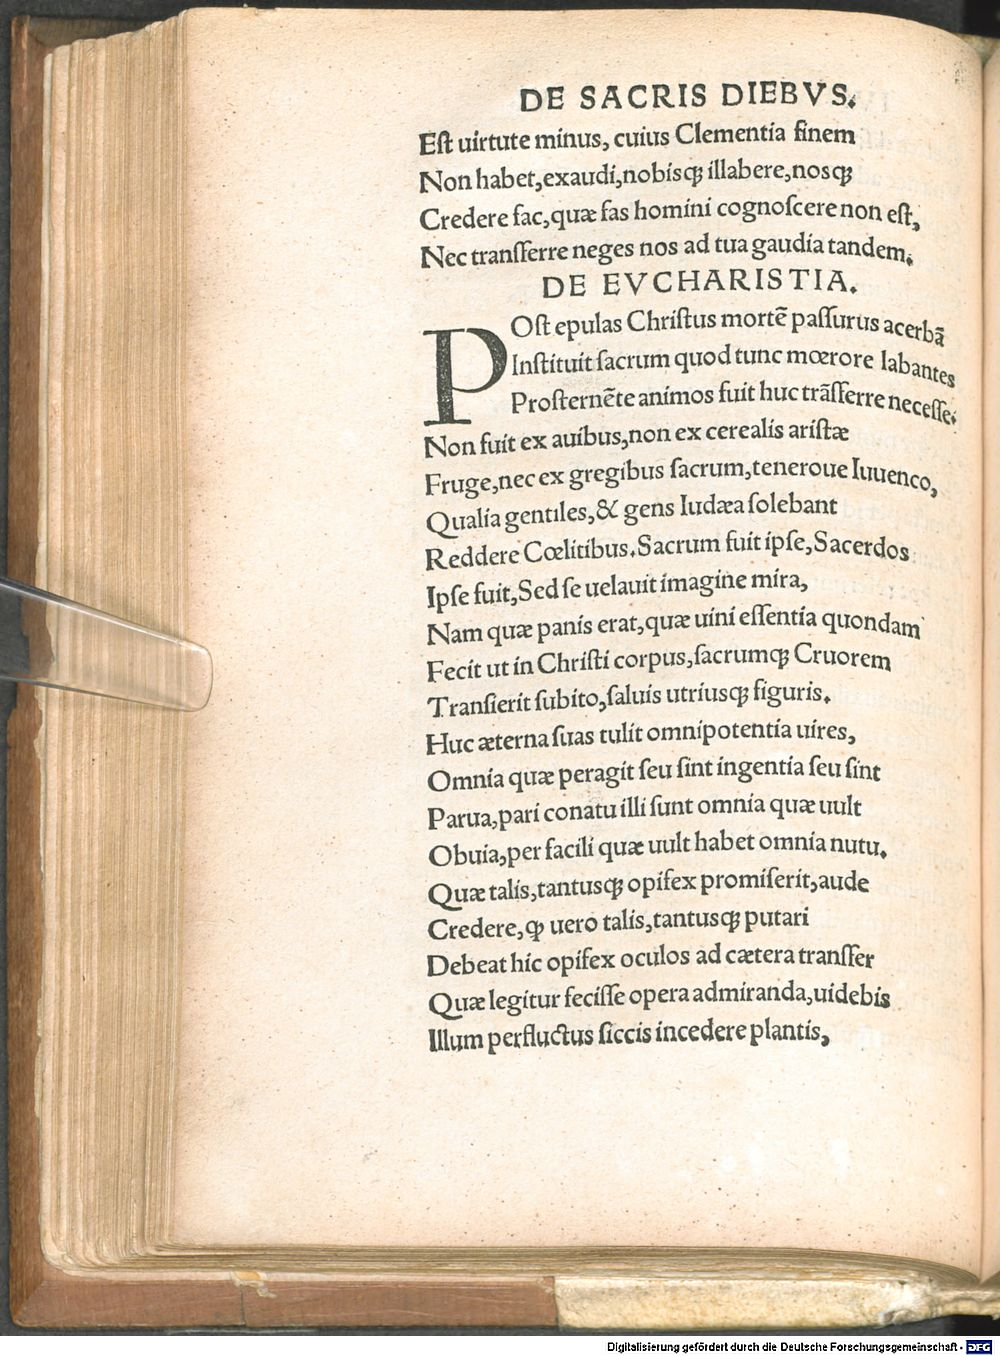 DE SACRIS DIEBVS.
Eſt uirtute minus, cuius Clementia finem
Non habet, exaudi, nobisqꝫ illabere, nosqꝫ
Credere fac, quæ fas homini cognoſcere non eſt,
Nec tranſferre neges nos ad tua gaudia tandem.
DE EVCHARISTIA.
POſt epulas Chriſtus mortē paſſurus acerbā
Inſtituit ſacrum quod tunc mœrore labantes
Proſternēte animos fuit huc trāſferre neceſſe.
Non fuit ex auibus, non ex cerealis ariſtæ
Fruge, nec ex gregibus ſacrum, teneroue Iuuenco,
Qualia gentiles, & gens Iudæa ſolebant
Reddere Cœlitibus. Sacrum fuit ipſe, Sacerdos
Ipſe fuit, Sed ſe uelauit imagine mira,
Nam quæ panis erat, quæ uini eſſentia quondam
Fecit ut in Chriſti corpus, ſacrumqꝫ Cruorem
Tranſierit ſubito, ſaluis utriusqꝫ figuris.
Huc æterna ſuas tulit omnipotentia uires,
Omnia quæ peragit ſeu ſint ingentia ſeu ſint
Parua, pari conatu illi ſunt omnia quæ uult
Obuia, per facili quæ uult habet omnia nutu.
Quæ talis, tantusqꝫ opifex promiſerit, aude
Credere, qꝫ uero talis, tantusqꝫ putari
Debeat hic opifex oculos ad cætera tranſfer
Quæ legitur feciſſe opera admiranda, uidebis
Illum per fluctus ſiccis incedere plantis,
Digitalisierung gefördert durch die Deutsche Forschungsgemeinschaft - DFG